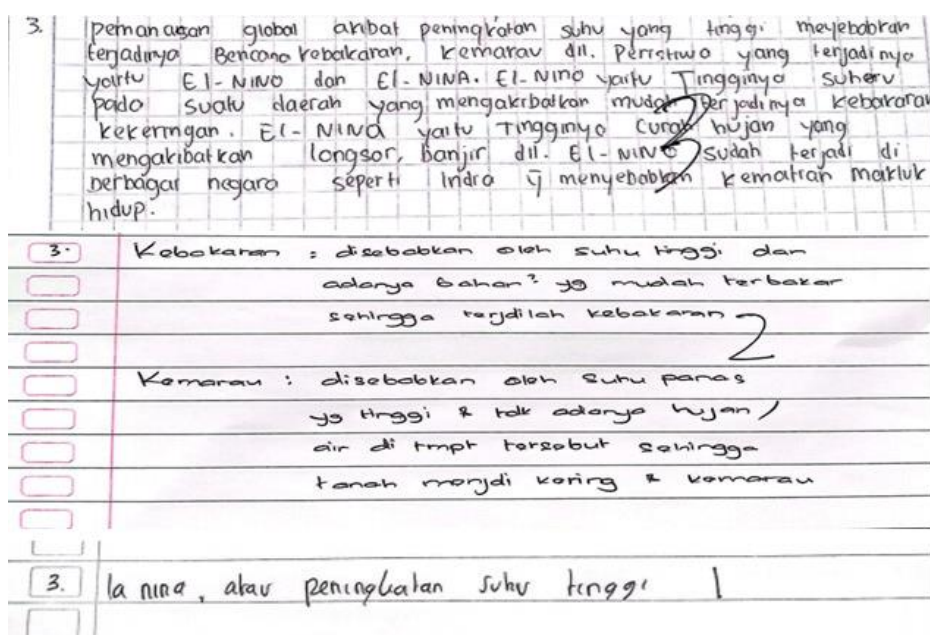 3. pemanasan global akibat peningkatan suhu yang tinggi meyebabkan
terjadinya Bencana kebakaran, kemarau dll. Peristiwa yang terjadinya
yaitu El-NINO dan El-NINA. El-Nino yaitu Tingginya
pada suatu daerah yang mengakibatkan mudah terjadinya kebakaran
kekeringan. El-NINA yaitu Tingginya Curah hujan yang
mengakibatkan longsor, banjir dll. El-NINO sudah terjadi di
berbagai negara seperti India yg menyebabkan kematian makluk
hidup.
2
3. Kebakaran : disebabkan oleh suhu tinggi dan
adanya bahan² yg mudah terbakar
sehingga terjdilah kebakaran
2
Kemarau : disebabkan oleh suhu panas
yg tinggi & tdk adanya hujan /
air di tmpt tersebut sehingga
tanah menjdi kering & kemarau
3. la nina, atau peningkatan suhu tinggi 1